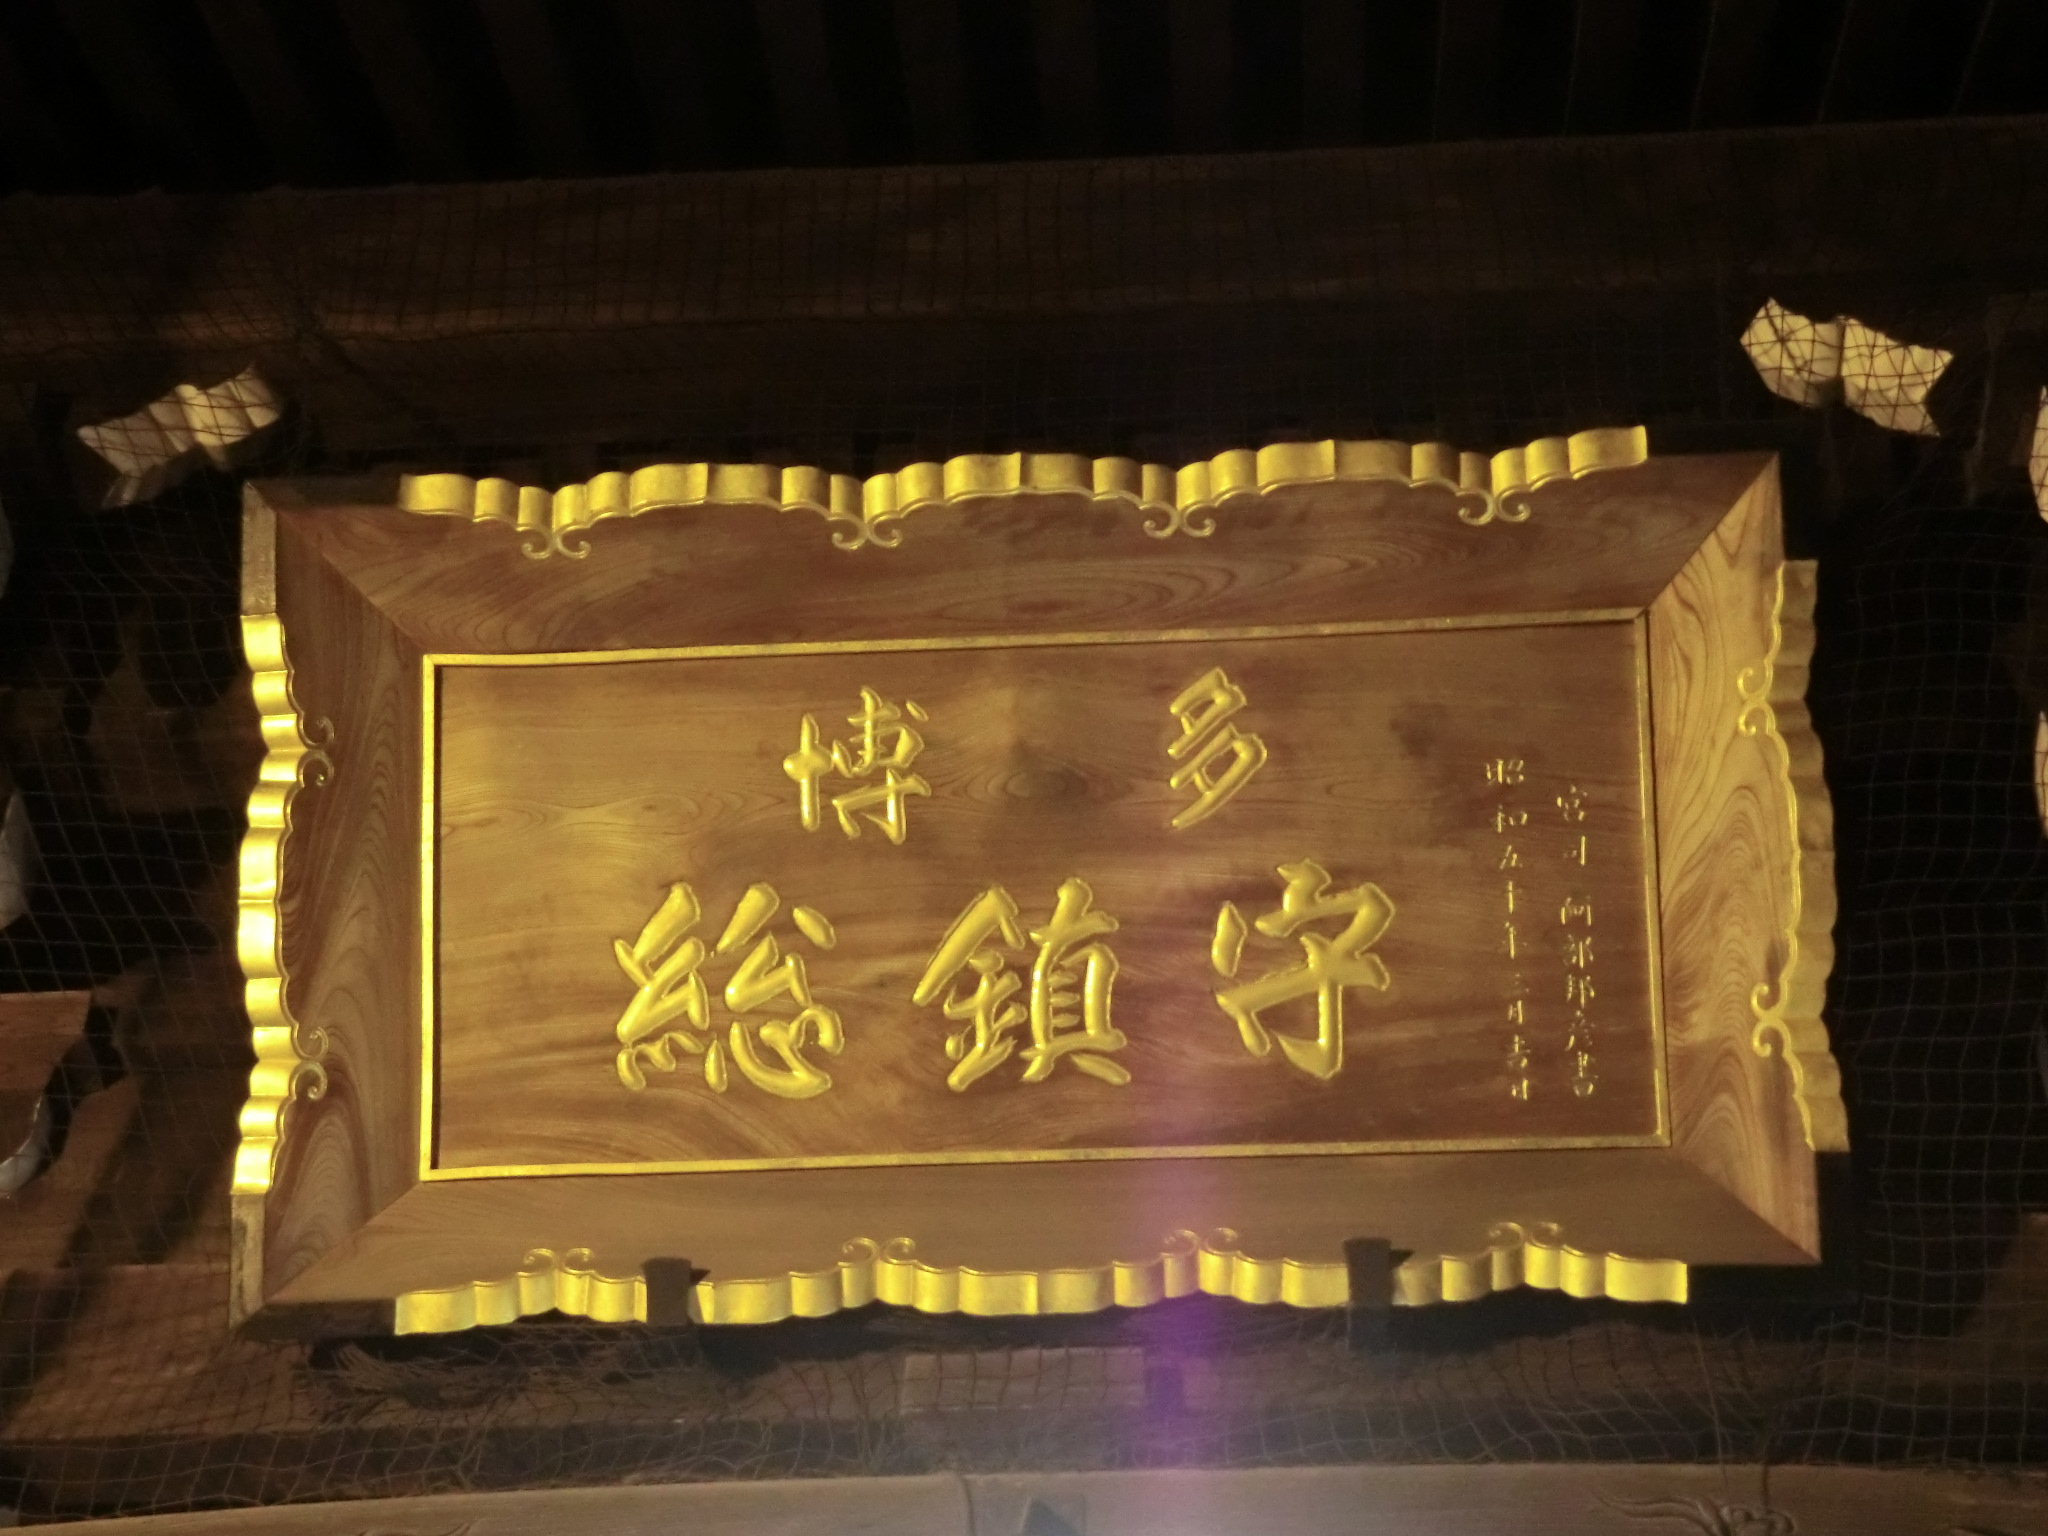 博多
総鎮守
昭和五十年三月吉日
宮司 阿部